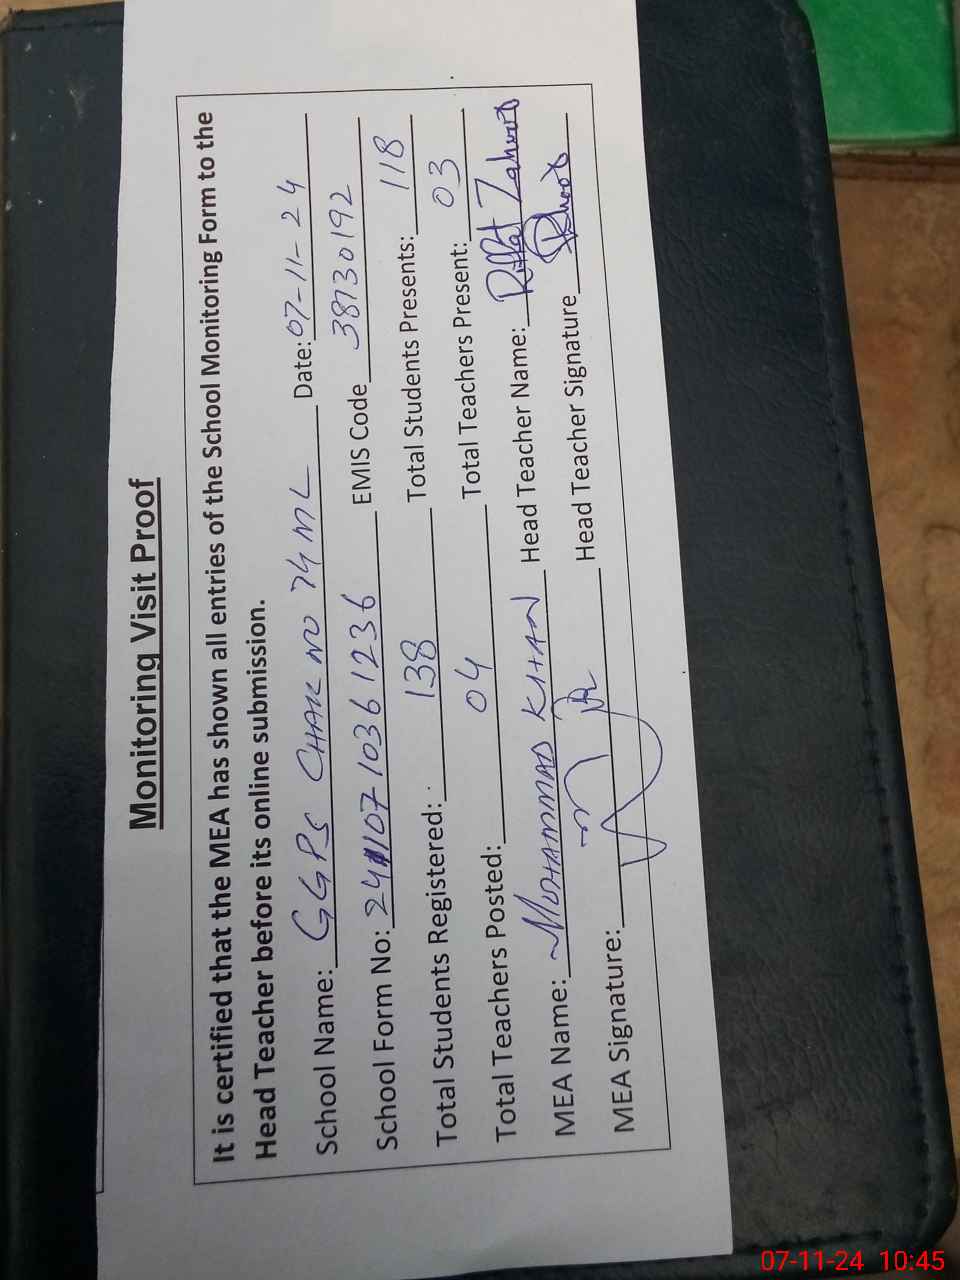 Monitoring Visit Proof
It is certified that the MEA has shown all entries of the School Monitoring Form to the
Head Teacher before its online submission.
School Name: GGPS CHAK NO 74 ML Date: 07-11-24
School Form No: 24110710361236 EMIS Code 38730192
Total Students Registered: 138 Total Students Presents: 118
Total Teachers Posted: 04 Total Teachers Present: 03
MEA Name: MUHAMMAD KHAN Head Teacher Name: Riffat Zahoor
MEA Signature: Head Teacher Signature
07-11-24 10:45